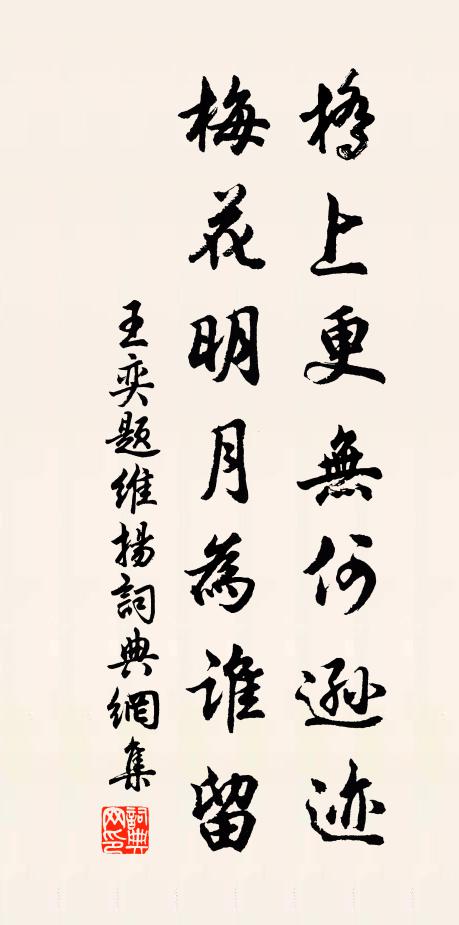 橋上更無何遜迹
梅花明月為誰留
王奕題維揚詞典網集
詞典网印